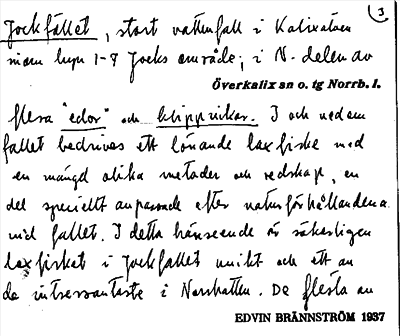 3
Jockfallet, stort vattenfall i Kalixälven
inom byn 1-8 Jocks område, i N. delen av
Överkalix sn o. tg Norrb. l.
flera "edor" och klippvikar. I och nedom
fallet bedrives ett lönande laxfiske med
en mängd olika metoder och redskap, en
del speciellt anpassade efter naturförhållandena
vid fallet. I detta hänseende är säkerligen
laxfisket i Jockfallet unikt och ett av
de intressantaste i Norrbotten. De flesta av
EDVIN BRÄNNSTRÖM 1937